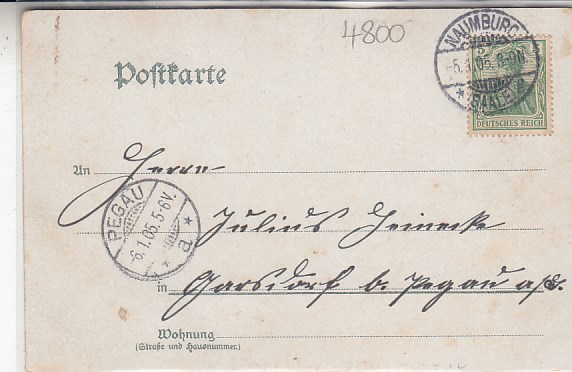 4800
Postkarte
NAUMBURG
-5.1.05. 8-9N.
* (SAALE) a
DEUTSCHES REICH
An Herrn
PEGAU
-6.1.05. 5-6V.
* a *
Julius Heinecke
in Garsdorf b. Pegau a/E.
Wohnung
(Straße und Hausnummer.)